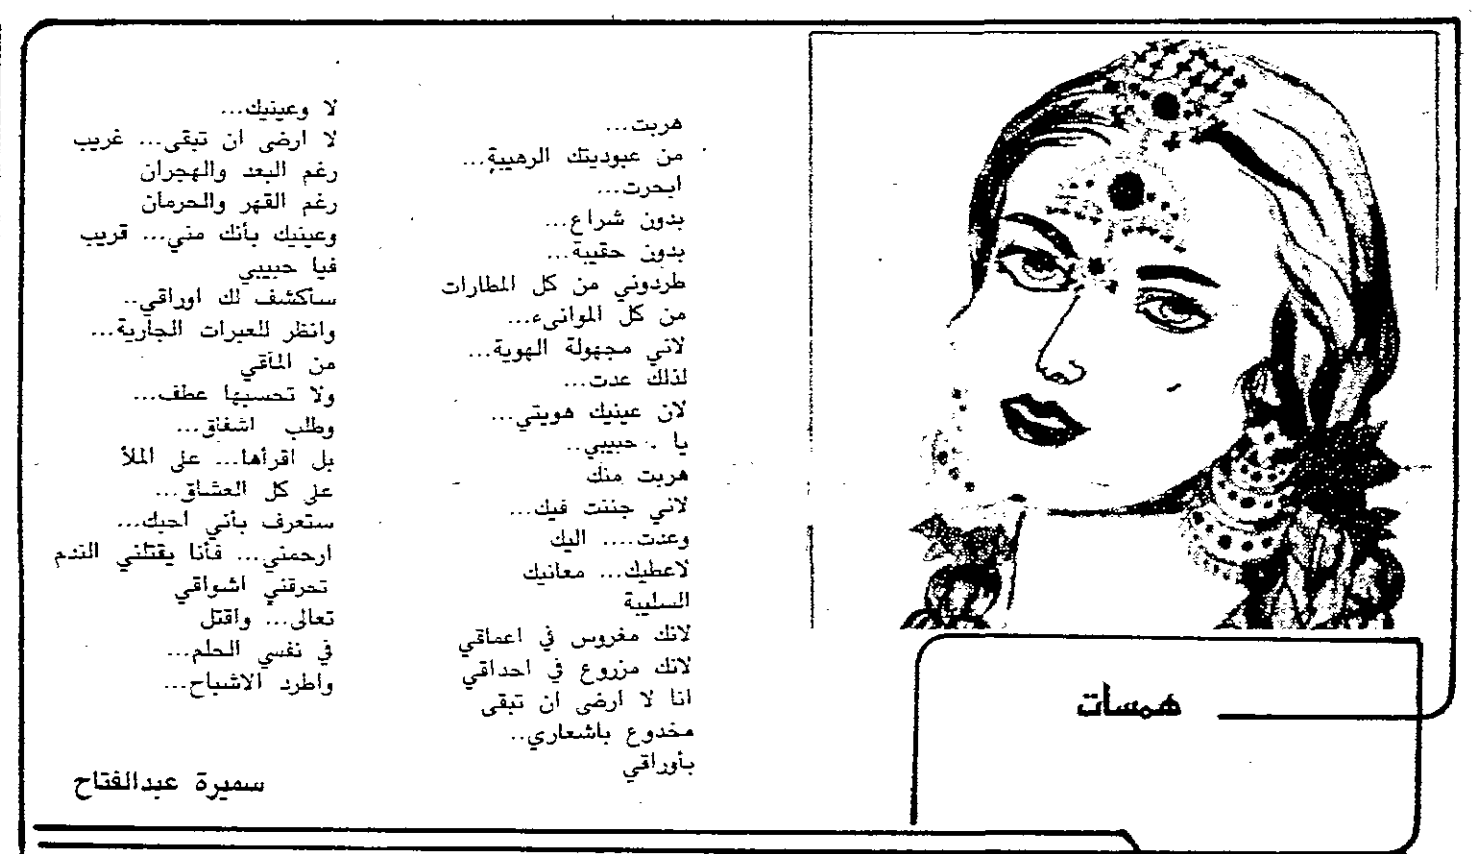 همسات
هربت...
من عبوديتك الرهيبة...
ابحرت...
بدون شراع...
بدون حقيبة...
طردوني من كل المطارات
من كل الموانىء...
لاني مجهولة الهوية...
لذلك عدت...
لان عينيك هويتي...
يا حبيبي..
هربت منك
لاني جننت فيك...
وعدت.... اليك
لاعطيك... معانيك
السليبة
لانك مغروس في اعماقي
لانك مزروع في احداقي
انا لا ارضى ان تبقى
مخدوع باشعاري..
بأوراقي
لا وعينيك...
لا ارضى ان تبقى... غريب
رغم البعد والهجران
رغم القهر والحرمان
وعينيك بأنك مني... قريب
فيا حبيبي
سأكشف لك اوراقي..
وانظر للعبرات الجارية...
من المآقي
ولا تحسبها عطف...
وطلب اشفاق...
بل اقرأها... على الملأ
على كل العشاق...
ستعرف بأني احبك...
ارحمني... فأنا يقتلني الندم
تحرقني اشواقي
تعالى... واقتل
في نفسي الحلم...
واطرد الاشباح...
سميرة عبدالفتاح